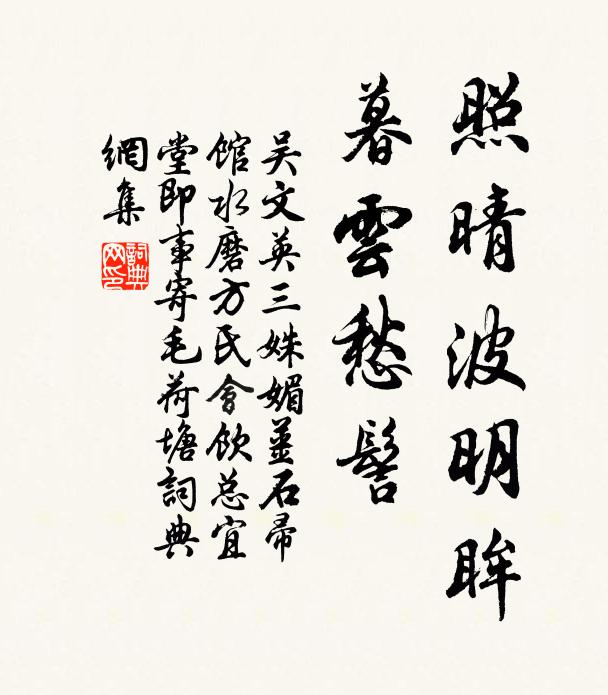 照晴波明眸
暮雲愁髻
吴文英三姝媚薑石帚
馆水磨方氏會飲总宜
堂即事寄毛荷塘詞典
網集
詞典
网印